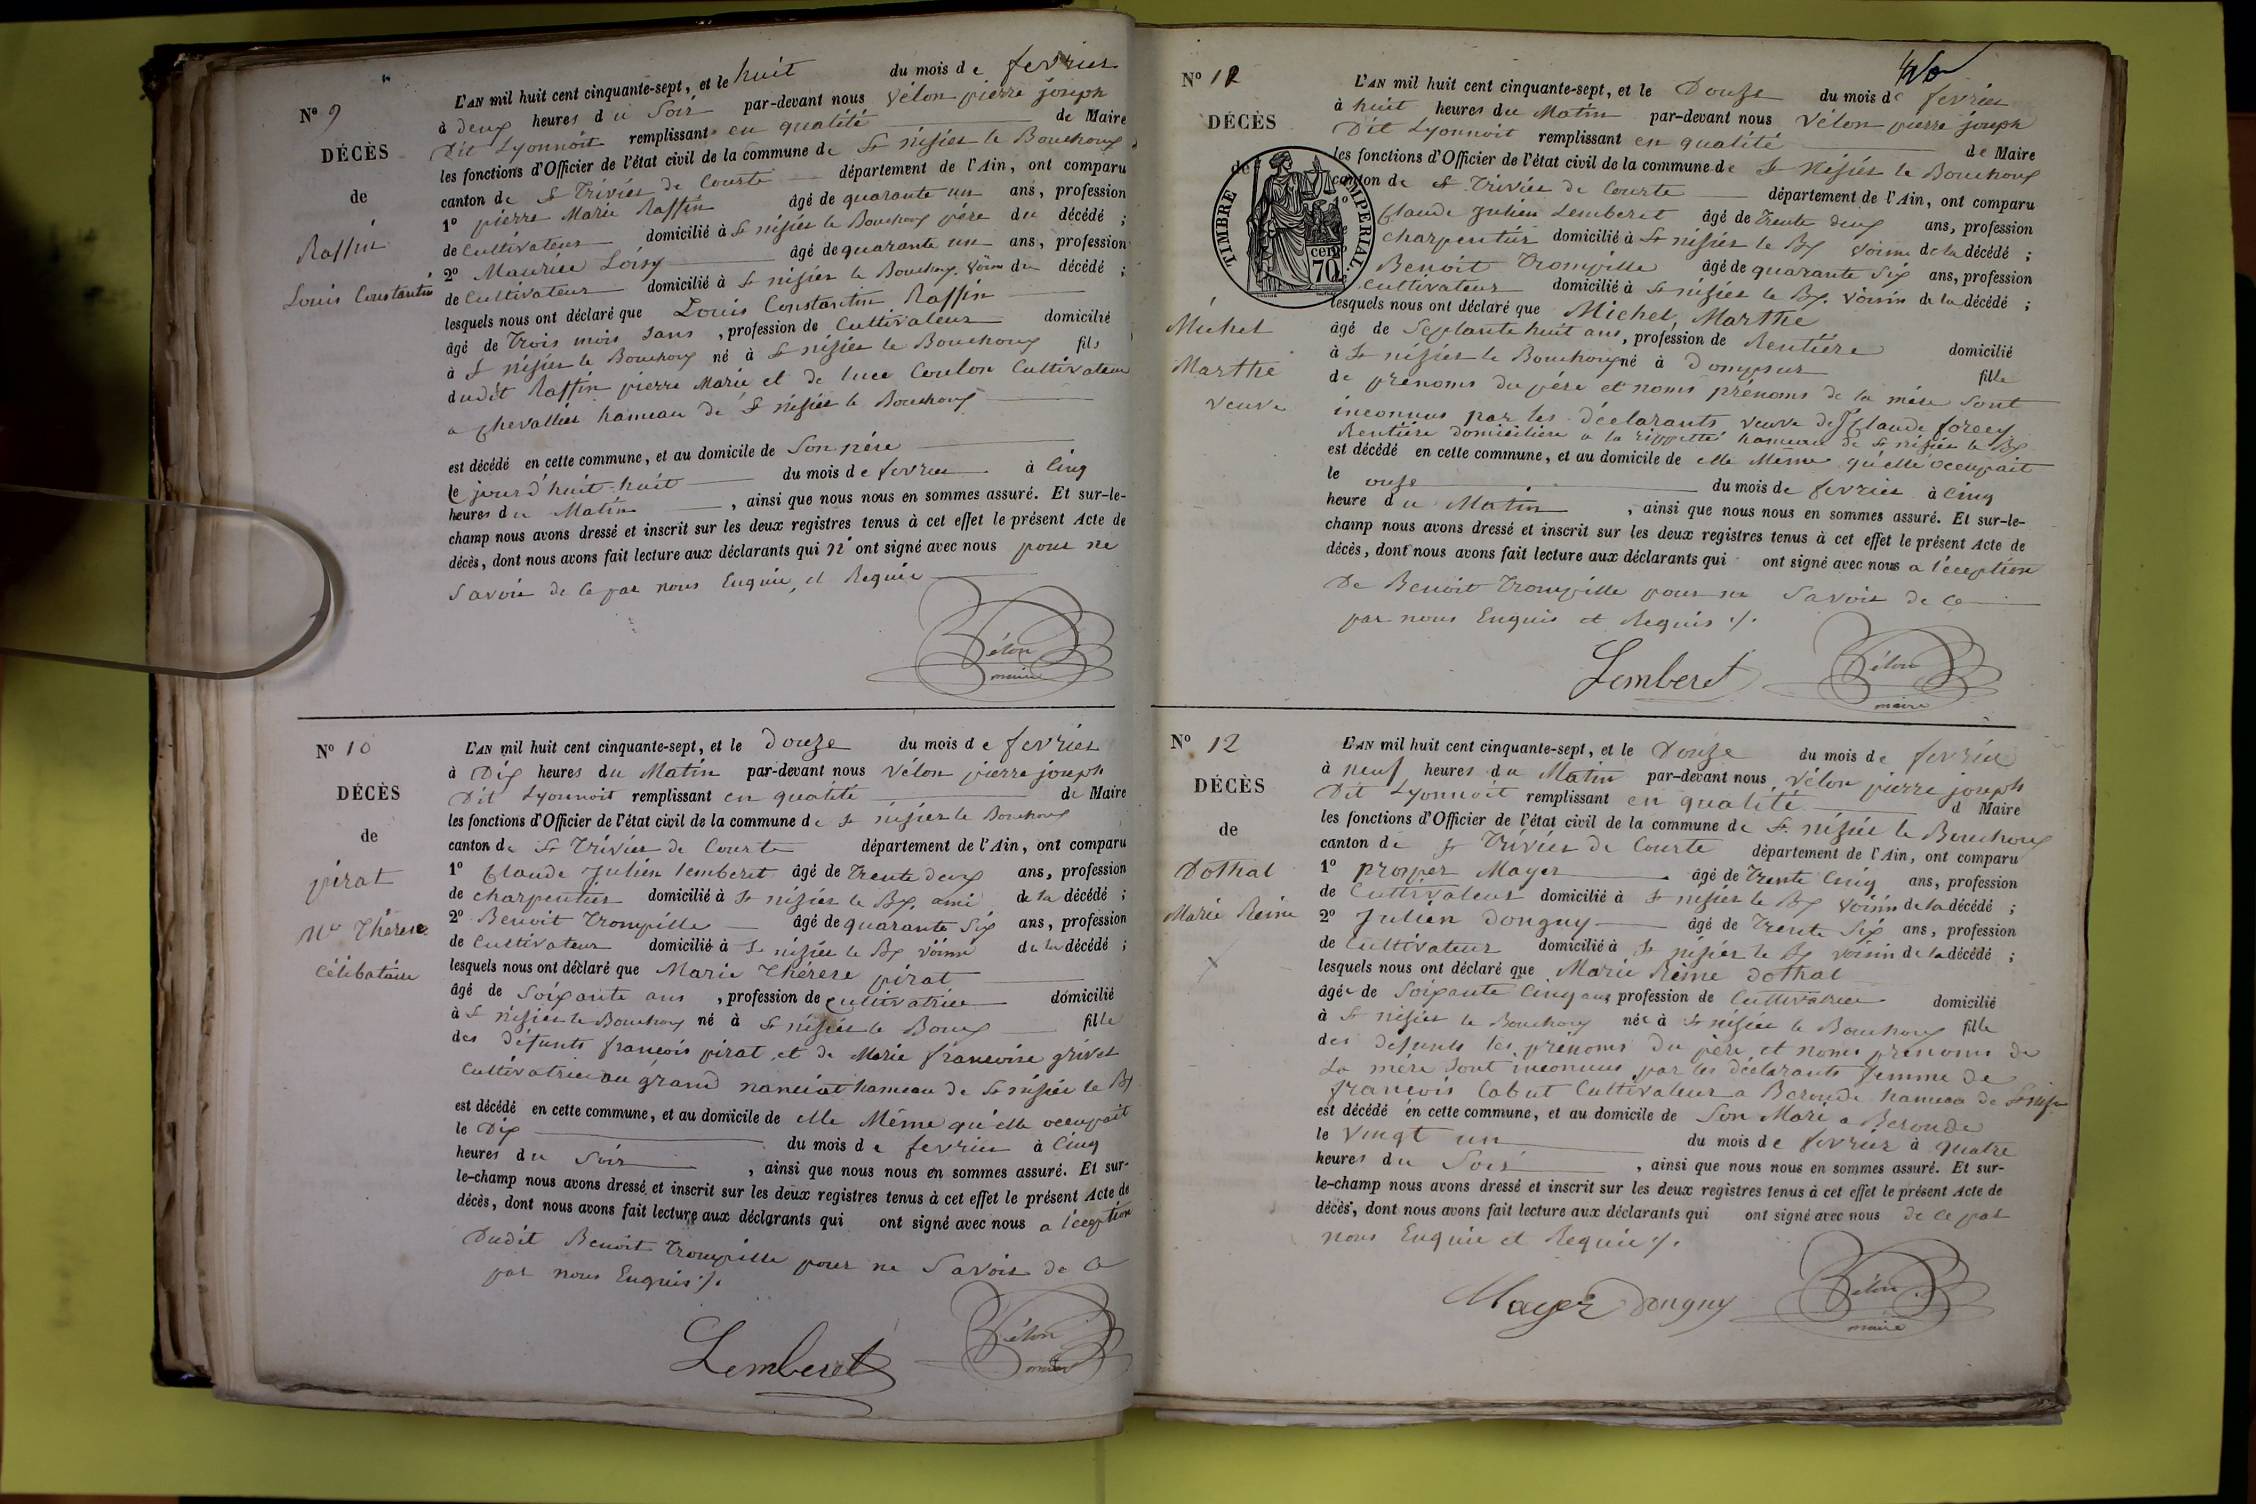 N° 9
DÉCÈS
de
Raffin
Louis Constantin
L'AN mil huit cent cinquante-sept, et le huit du mois de fevrier
à deux heures du Soir par-devant nous Vélon pierre joseph
Dit Lyonnoit remplissant en qualité de Maire
les fonctions d'Officier de l'état civil de la commune de St nisier le Bouchoux
canton de St Trivier de Courte département de l'Ain, ont comparu
1° pierre Marie Raffin âgé de quarante un ans, profession
de Cultivateur domicilié à St nisier le Bouchoux père du décédé ;
2° Maurice Loisy âgé de quarante un ans, profession
de Cultivateur domicilié à St nisier le Bouchoux voisin du décédé ;
lesquels nous ont déclaré que Louis Constantin Raffin
âgé de Trois mois sans , profession de Cultivateur domicilié
à St nisier le Bouchoux né à St nisier le Bouchoux fils
dudit Raffin pierre Marie et de luce Coulon Cultivateur
a chevallier hameau de St nisier le Bouchoux
est décédé en cette commune, et au domicile de Son père
le jourd'huit huit du mois de fevrier à Cinq
heures du Matin , ainsi que nous nous en sommes assuré. Et sur-le-
champ nous avons dressé et inscrit sur les deux registres tenus à cet effet le présent Acte de
décès, dont nous avons fait lecture aux déclarants qui n' ont signé avec nous pour ne
Savoir de Ce par nous Enquis, et Requis
Vélon
maire
N° 10
DÉCÈS
de
pirat
Mie Thérese
Célibataire
L'AN mil huit cent cinquante-sept, et le Douze du mois de fevrier
à Dix heures du Matin par-devant nous Vélon pierre joseph
Dit Lyonnoit remplissant en qualité de Maire
les fonctions d'Officier de l'état civil de la commune de St nisier le Bouchoux
canton de St Trivier de Courte département de l'Ain, ont comparu
1° Claude Julien Lemberet âgé de Trente deux ans, profession
de charpentier domicilié à St nisier le Bx. ami de la décédé ;
2° Benoit Trompille âgé de quarante Six ans, profession
de Cultivateur domicilié à St nisier le Bx voisin de la décédé ;
lesquels nous ont déclaré que Marie Thérese pirat
âgé de Soixante ans , profession de Cultivatrice domicilié
à St nisier le Bouchoux né à St nisier le Boux fille
des défunts françois pirat et de Marie françoise grivet
Cultivatrice au grand nanciat hameau de St nisier le Bx
est décédé en cette commune, et au domicile de elle Même qu'elle occupait
le Dix du mois de fevrier à Cinq
heures du Soir , ainsi que nous nous en sommes assuré. Et sur-
le-champ nous avons dressé et inscrit sur les deux registres tenus à cet effet le présent Acte de
décès, dont nous avons fait lecture aux déclarants qui ont signé avec nous a l'éception
Dudit Benoit Trompille pour ne Savoir de Ce
par nous Enquis ./.
Lemberet
Vélon
maire
N° 12
DÉCÈS
de
TIMBRE IMPERIAL.
cen
70
Michel
Marthe
veuve
L'AN mil huit cent cinquante-sept, et le Douze du mois de fevrier
à huit heures du Matin par-devant nous Vélon pierre joseph
Dit Lyonnoit remplissant en qualité de Maire
les fonctions d'Officier de l'état civil de la commune de St Nisier le Bouchoux
canton de St Trivier de Courte département de l'Ain, ont comparu
1° Claude Julien Lemberet âgé de Trente deux ans, profession
charpentier domicilié à St nisier le Bx voisin de la décédé ;
Benoit Trompille âgé de quarante Six ans, profession
Cultivateur domicilié à St nisier le Bx. voisin de la décédé ;
lesquels nous ont déclaré que Michel Marthe
âgé de Septante huit ans, profession de Rentière domicilié
à St nisier le Bouchoux né à Dompsur fille
de prénoms du père et noms prénoms de la mère sont
inconnus par les déclarants veuve de Claude forey
Rentière domicilière a la rippette hameau de St nisier le Bx
est décédé en cette commune, et au domicile de elle Même qu'elle occupait
le onze du mois de fevrier à Cinq
heure du Matin , ainsi que nous nous en sommes assuré. Et sur-le-
champ nous avons dressé et inscrit sur les deux registres tenus à cet effet le présent Acte de
décès, dont nous avons fait lecture aux déclarants qui ont signé avec nous a l'éception
De Benoit Trompille pour ne Savoir de Ce
par nous Enquis et Requis ./.
Lemberet
Vélon
maire
N° 12
DÉCÈS
de
Dothal
Marie Reine
L'AN mil huit cent cinquante-sept, et le Douze du mois de fevrier
à neuf heures du Matin par-devant nous Vélon pierre joseph
Dit Lyonnoit remplissant en qualité d Maire
les fonctions d'Officier de l'état civil de la commune de St. nisier le Bouchoux
canton de St Trivier de Courte département de l'Ain, ont comparu
1° prosper Mayer âgé de Trente Cinq ans, profession
de Cultivateur domicilié à St nisier le Bx voisin de la décédé ;
2° Julien Donguy âgé de Trente Six ans, profession
de Cultivateur domicilié à St nisier le Bx voisin de la décédé ;
lesquels nous ont déclaré que Marie Reine Dothal
âgée de Soixante Cinq ans profession de Cultivatrice domicilié
à St nisier le Bouchoux née à St nisier le Bouchoux fille
des defunts les prénoms du père et noms prenoms de
La mère Sont inconnus par les déclarants femme de
françois Cabut Cultivateur a Beronde hameau de St nisier
est décédé en cette commune, et au domicile de Son Mari a Beronde
le Vingt un du mois de fevrier à quatre
heures du Soir , ainsi que nous nous en sommes assuré. Et sur-
le-champ nous avons dressé et inscrit sur les deux registres tenus à cet effet le présent Acte de
décès, dont nous avons fait lecture aux déclarants qui ont signé avec nous de Ce par
nous Enquis et Requis ./.
Mayer Donguy
Vélon
maire